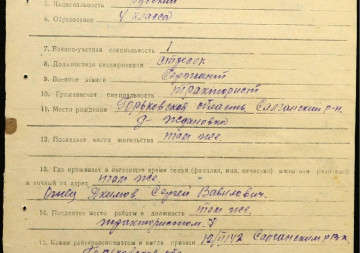 5. Национальность русский
6. Образование 4 класса
7. Военно-учетная специальность 1
8. Должностная квалификация стрелок
9. Военное звание
10. Гражданская специальность тракторист
11. Место рождения Горьковская область Салганский р-н
д. Ждановка
12. Последнее место жительства там же.
13. Где проживает в настоящее время семья (фамилия, имя, отчество) жены или родителей
и точный их адрес там же.
Отец Сергей Вавилович.
14. Последнее место работы и должность там же
трактористом
15. Каким райвоенкоматом и когда призван 42 Салганским рвк